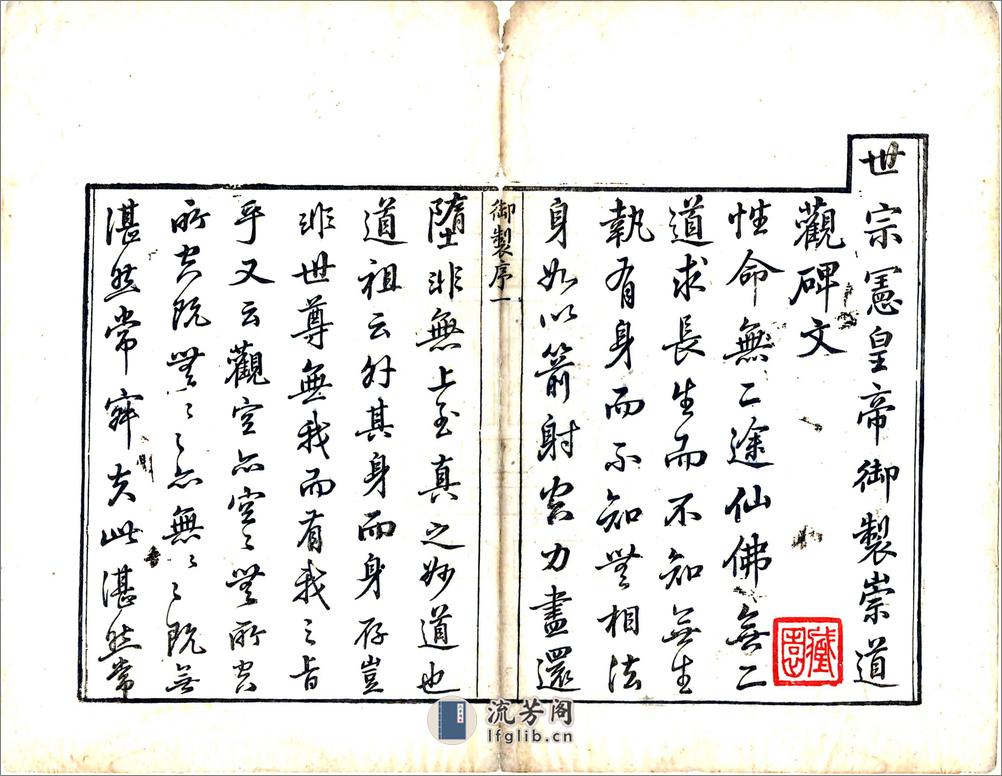 世宗憲皇帝御製崇道
觀碑文
性命無二途仙佛無二
道求長生而不知無生
執有身而不知無相法
身如以箭射空力盡還
御製序一
墮非無上至真之妙道也
道祖云外其身而身存豈
非世尊無我而有我之旨
乎又云觀空亦空空無所空
所空既無無無亦無無無既無
湛然常寂夫此湛然常
流芳阁
lfglib.cn